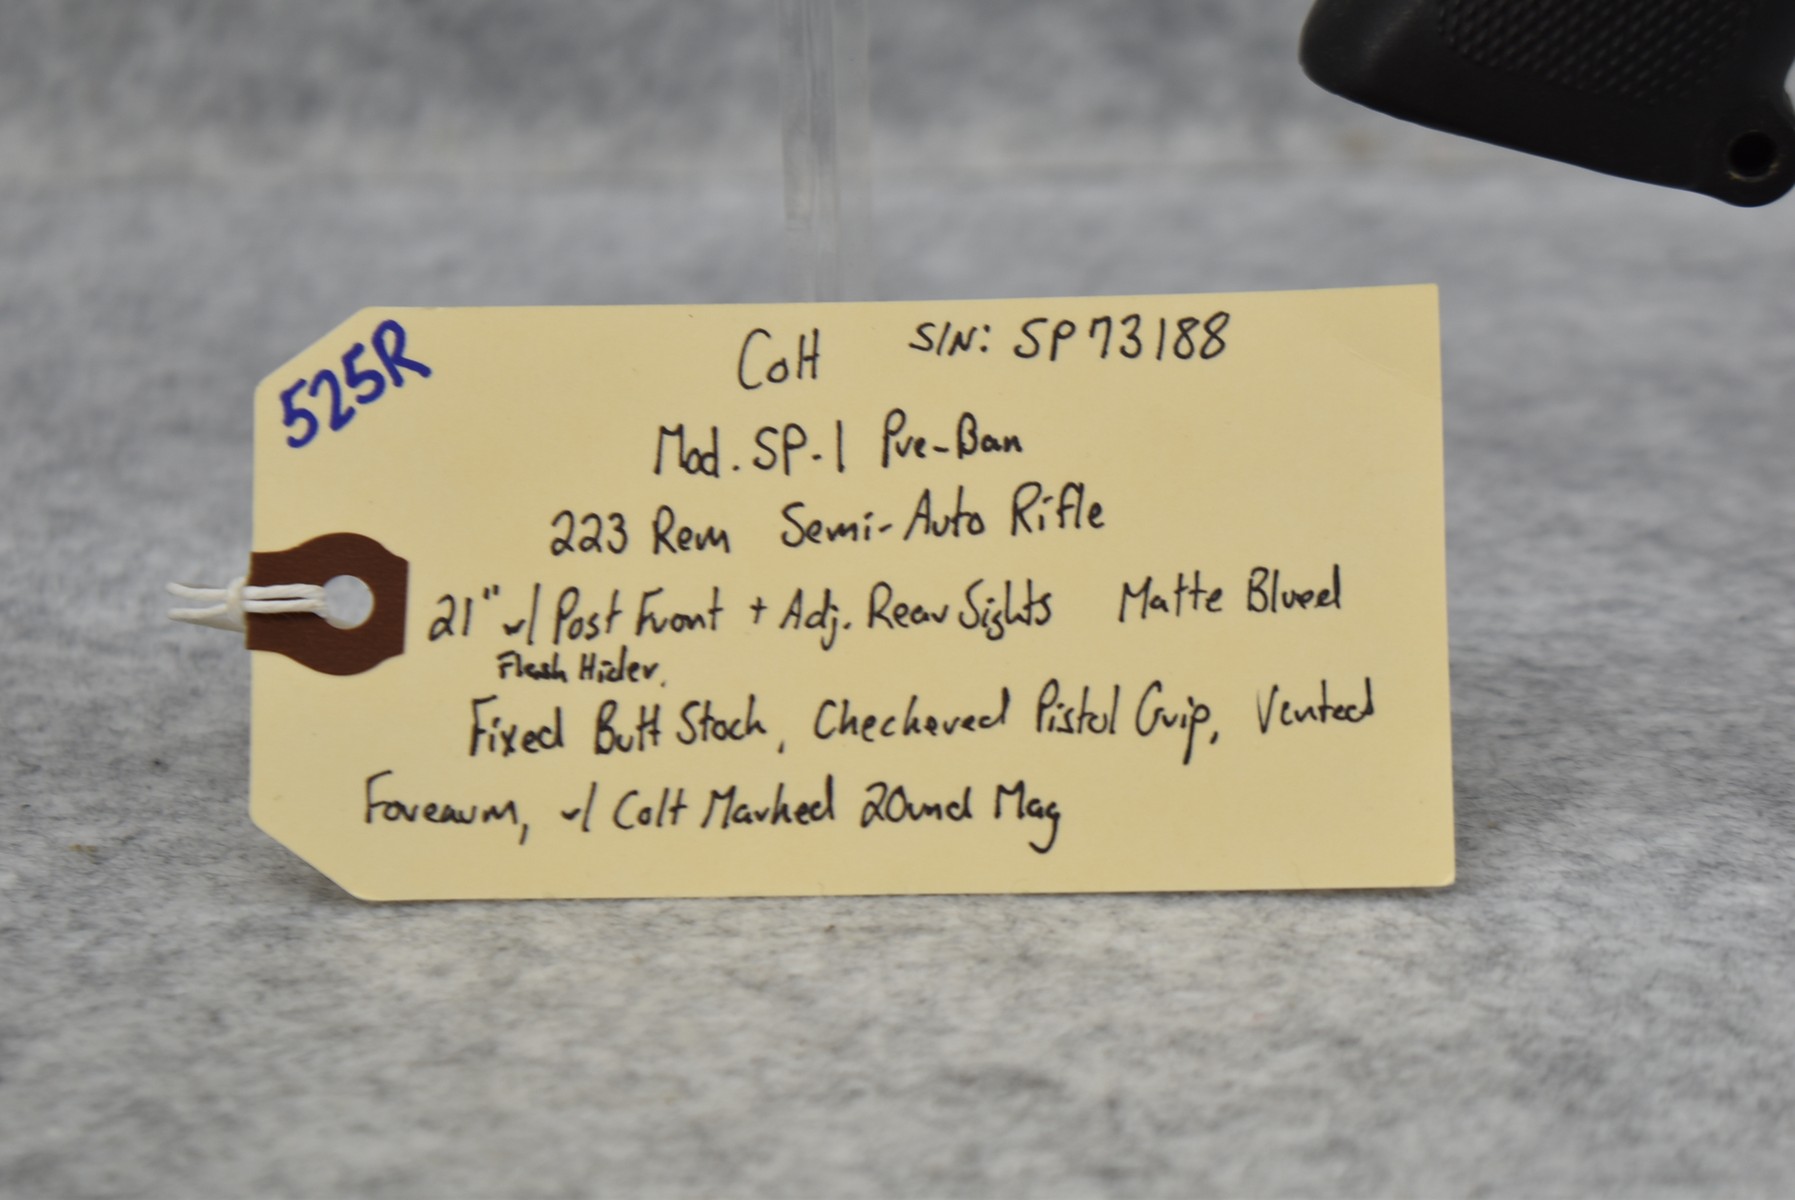 525R
Colt S/N: SP73188
Mod. SP-1 Pre-Ban
223 Rem Semi-Auto Rifle
21" w/ Post Front + Adj. Rear Sights Matte Blued
Flash Hider.
Fixed Butt Stock, Checkered Pistol Grip, Vented
Forearm, w/ Colt Marked 20rnd Mag